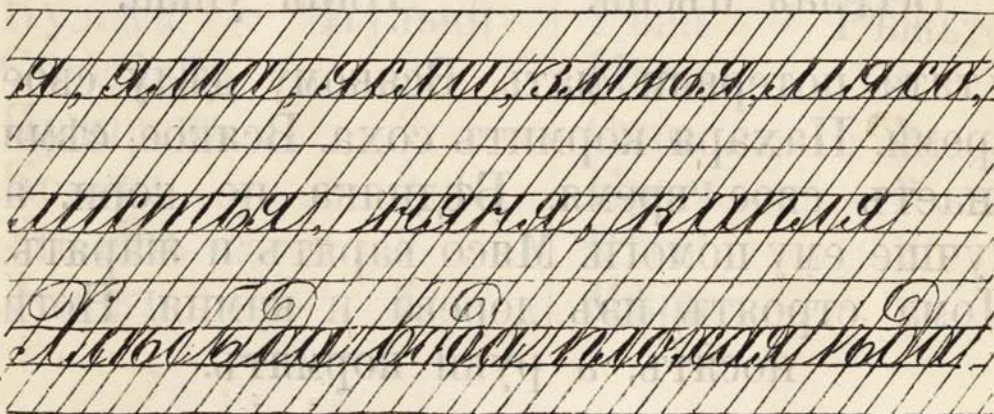 я, яма, ясли, змѣя, мясо,
листья, няня, капля
Хлѣбъ да вода плохая ѣда.